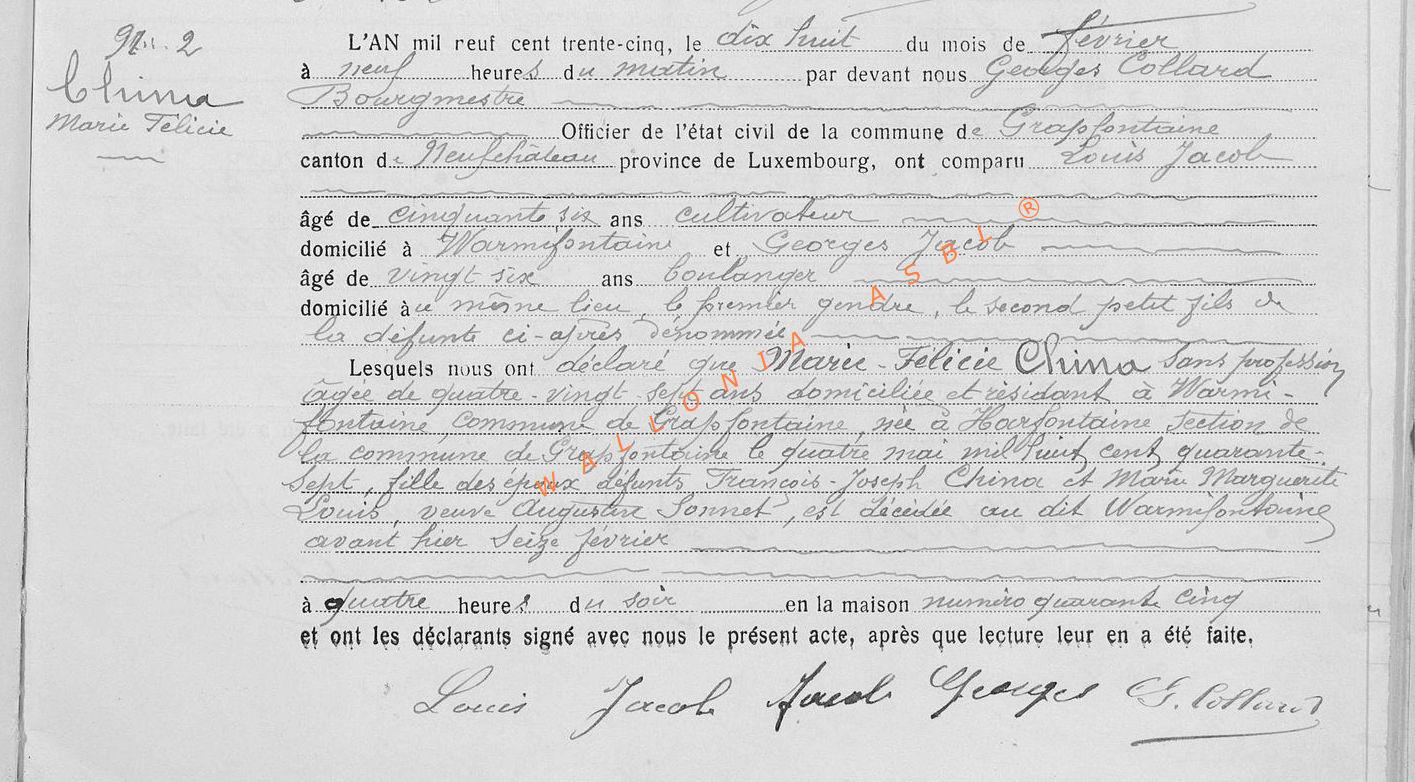 N° 2
China
Marie Félicie
L'AN mil neuf cent trente-cinq, le dix huit du mois de février
à neuf heures du matin par devant nous Georges Collard
Bourgmestre
Officier de l'état civil de la commune de Grapfontaine
canton de Neufchâteau province de Luxembourg, ont comparu Louis Jacob
âgé de cinquante six ans cultivateur
domicilié à Warmifontaine et Georges Jacob
âgé de vingt six ans boulanger
domicilié àu même lieu, le premier gendre, le second petit fils de
la défunte ci-après dénommée
Lesquels nous ont déclaré que Marie-Félicie China sans profession
âgée de quatre-vingt sept ans domiciliée et résidant à Warmi-
fontaine, commune de Grapfontaine, née à Harfontaine, section de
la commune de Grapfontaine le quatre mai mil huit cent quarante-
sept, fille des époux défunts François-Joseph China et Marie Marguerite
Louis, veuve Augustin Sonnet, est décédée au dit Warmifontaine
avant hier seize février
à quatre heures du soir en la maison numéro quarante cinq
et ont les déclarants signé avec nous le présent acte, après que lecture leur en a été faite.
Louis Jacob Jacob Georges G. Collard
WALLONIA ASBL ®